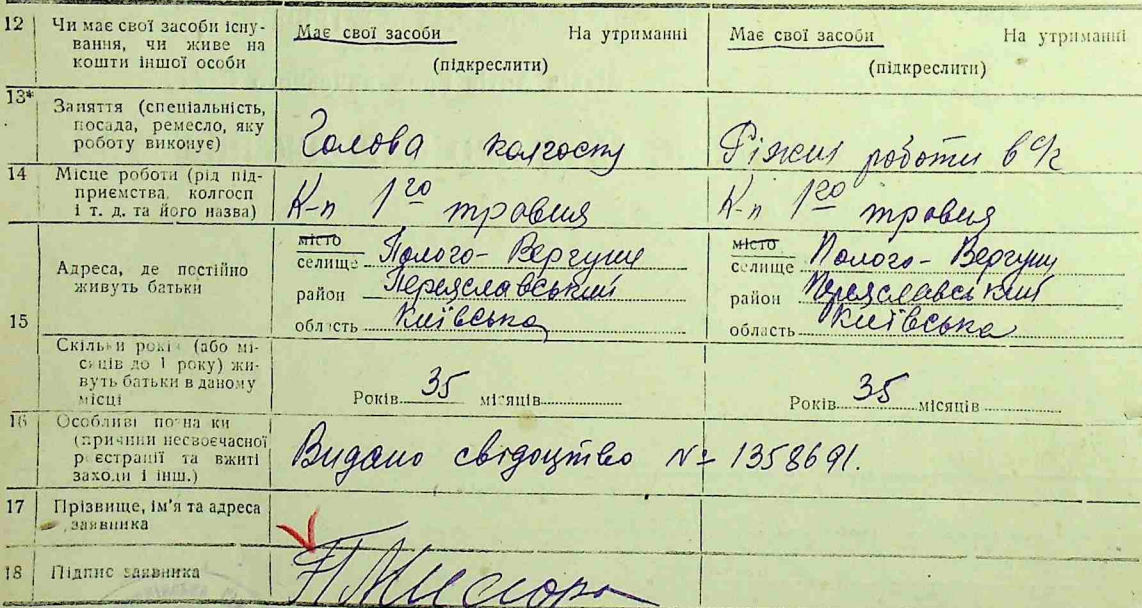 12 Чи має свої засоби існу-
вання, чи живе на
кошти іншої особи
Має свої засоби На утриманні
(підкреслити)
Має свої засоби На утриманні
(підкреслити)
13* Заняття (спеціальність,
посада, ремесло, яку
роботу виконує)
Голова колгоспу
Ріжні роботи в с/г
14 Місце роботи (рід під-
приємства, колгосп
і т. д. та його назва)
К-п 1го травня
К-п 1го травня
15 Адреса, де постійно
живуть батьки
місто
селище Полого-Вергуни
район Переяславський
область Київська
місто
селище Полого-Вергуни
район Переяславський
область Київська
Скільки років (або мі-
сяців до 1 року) жи-
вуть батьки в даному
місці
Років 35 місяців
Років 35 місяців
16 Особливі позначки
(причини несвоєчасної
реєстрації та вжиті
заходи і інш.)
Видано свідоцтво № 1358691.
17 Прізвище, ім'я та адреса
заявника
18 Підпис заявника